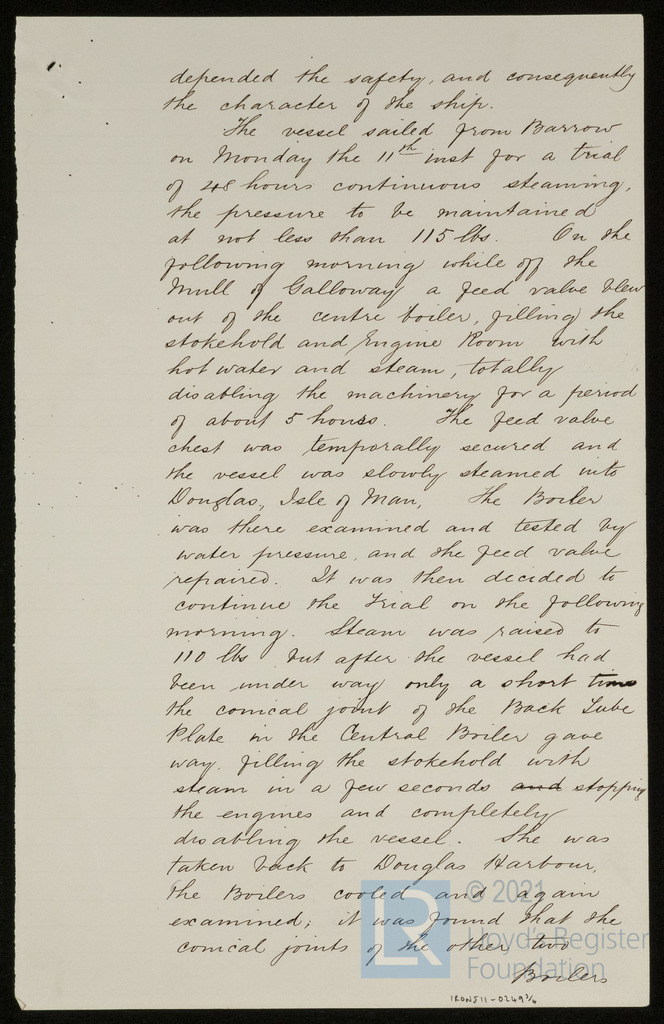 depended the safety, and consequently
the character of the ship.
The vessel sailed from Barrow
on Monday the 11th inst for a trial
of 48 hours continuous steaming,
the pressure to be maintained
at not less than 115 lbs. On the
following morning while off the
Mull of Galloway a feed valve blew
out of the centre boiler, filling the
stokehold and Engine Room with
hot water and steam, totally
disabling the machinery for a period
of about 5 hours. The feed valve
chest was temporally secured and
the vessel was slowly steamed into
Douglas, Isle of Man, The Boiler
was there examined and tested by
water pressure, and the feed valve
repaired. It was then decided to
continue the Trial on the following
morning. Steam was raised to
110 lbs but after the vessel had
been under way only a short time
the conical joint of the Back Tube
Plate in the Central Boiler gave
way, filling the stokehold with
steam in a few seconds and stopping
the engines and completely
disabling the vessel. She was
taken back to Douglas Harbour,
the Boilers cooled and again
examined; it was found that the
conical joints of the other two
Boilers
IRON511-0249 3/6
LR
© 2021
Lloyd's Register
Foundation